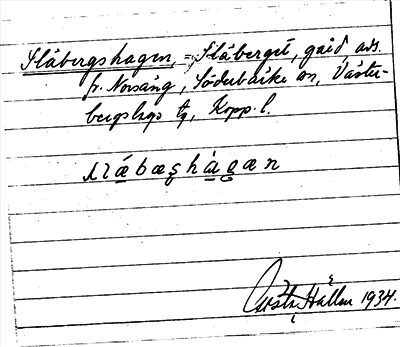 Släbergshagen, = Släberget, gård, avs.
fr. Norsäng, Söderbärke sn, Väster-
bergslags tg, Kopp. l.
slǻbæʂhàgæn
Gösta Hallm 1934.